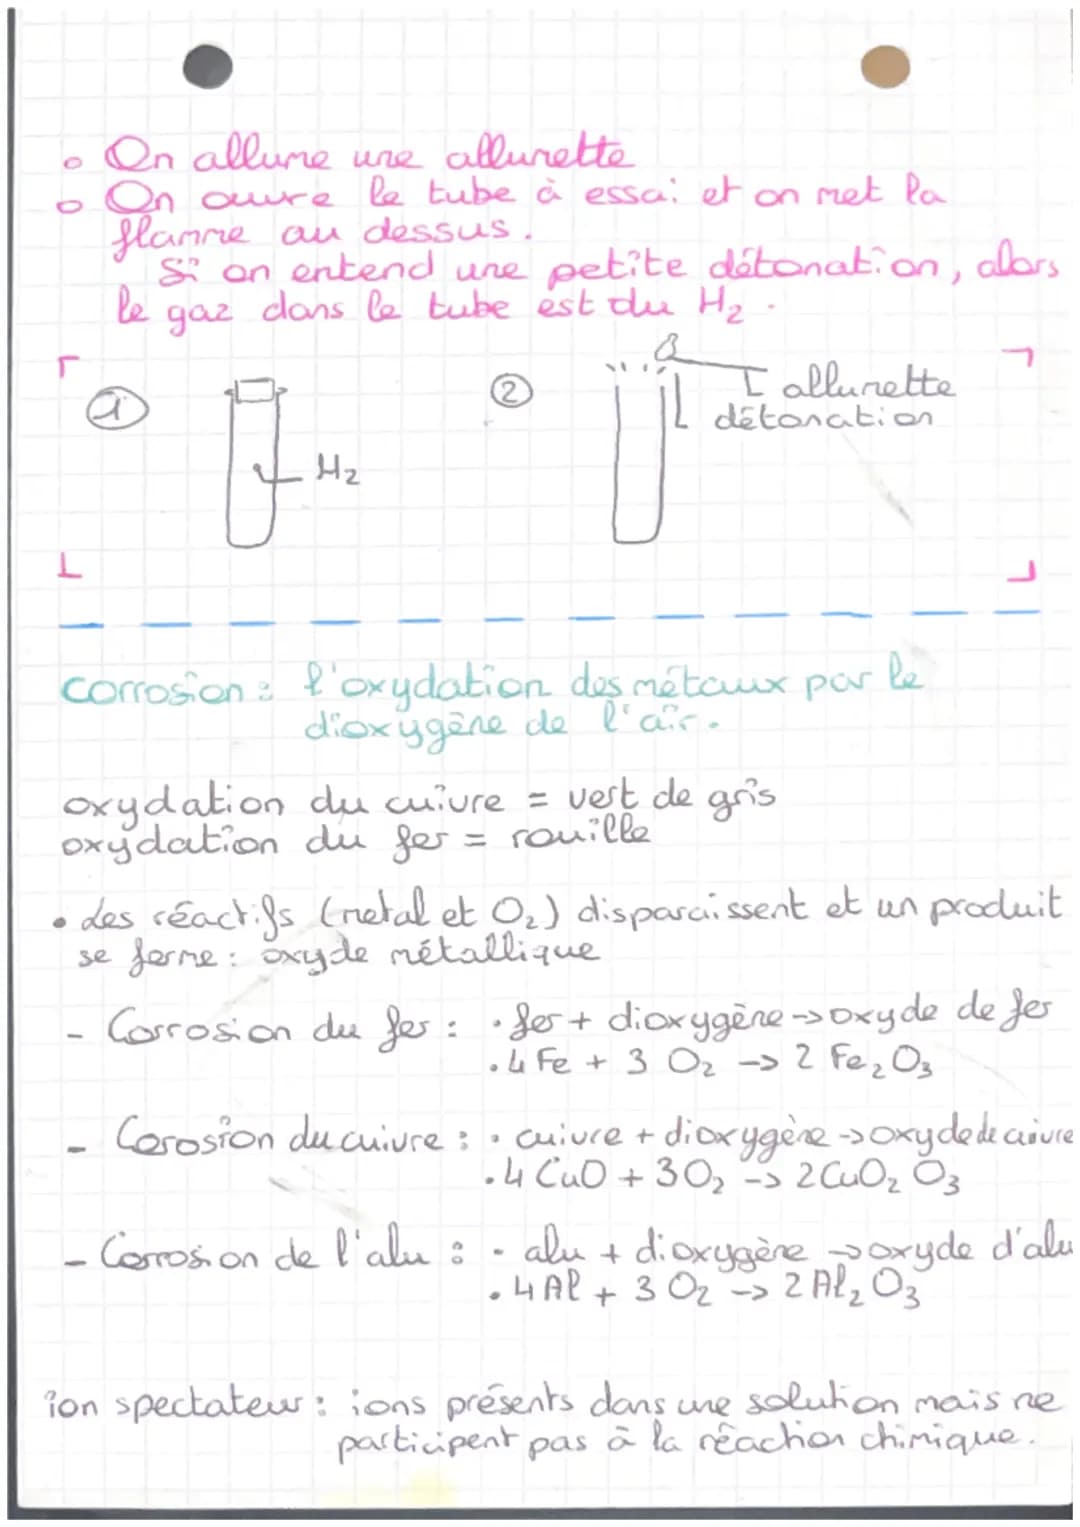 On allume une allumette
On ouvre le tube à essai et on met la
flamme au dessus.
Si on entend une petite détonation, alors
le gaz dans le tube est du H₂.
① ② allumette
détonation
H₂
corrosion : l'oxydation des métaux par le
dioxygène de l'air.
oxydation du cuivre = vert de gris
oxydation du fer = rouille
• des réactifs (métal et O₂) disparaissent et un produit
se forme : oxyde métallique
- Corrosion du fer : • fer + dioxygène -> oxyde de fer
• 4 Fe + 3 O₂ -> 2 Fe₂O₃
- Corosion du cuivre : • cuivre + dioxygène -> oxyde de cuivre
• 4 CuO + 3O₂ -> 2CuO₂ O₃
- Corrosion de l'alu : • alu + dioxygène -> oxyde d'alu
• 4Al + 3 O₂ -> 2 Al₂O₃
ion spectateur : ions présents dans une solution mais ne
participent pas à la réaction chimique.